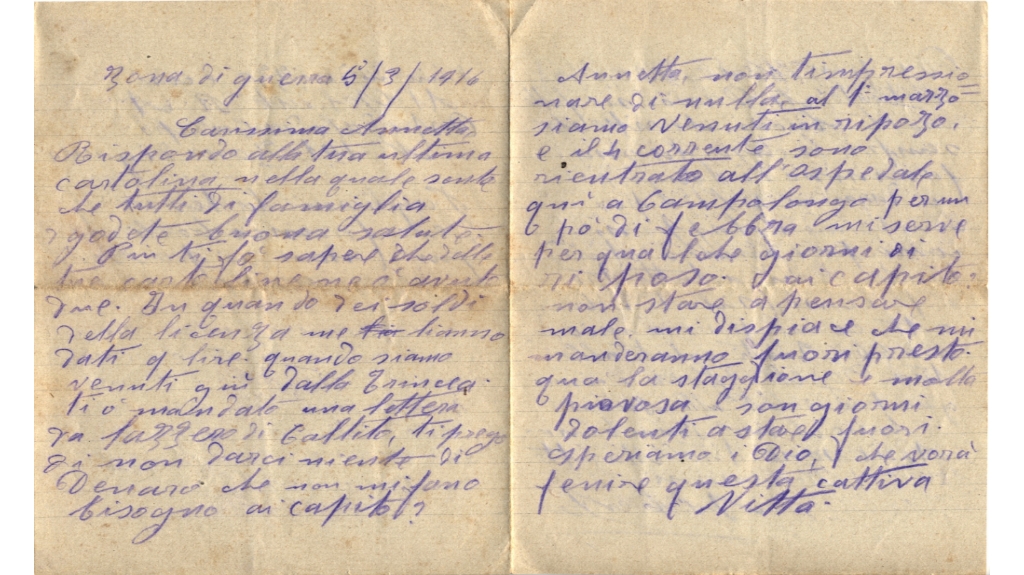 Zona di guerra 5/3/1916
Carissima Annetta
Rispondo alla tua ultima
cartolina, nella quale sento
che tutti di famiglia
godete buona salute
ti fò sapere che delle
tue cartoline ne ò avute
due. In quando dei soldi
della licenza me li anno
dati 9 lire quando siamo
venuti quì dalla Trincea.
ti ò mandato una lettera
da di Callito, ti prego
di non darci niente di
Denaro che non mi fano
bisogno ai capito?
Annetta, non timpressio=
nare di nulla, al 1° marzo
siamo venuti in ripozo,
e il 4 corrente sono
rientrato all'ospedale
quì a Campolongo per un
pò di febbra mi serve
per qualche giorni di
riposo. ai capito.
non stare a pensare
male. mi dispiace che mi
manderanno fuori presto.
qua la staggione è molta
piovosa son giorni
dolenti a stare fuori.
speriamo i Dio, che vorà
fenire questa cattiva
Vitta.